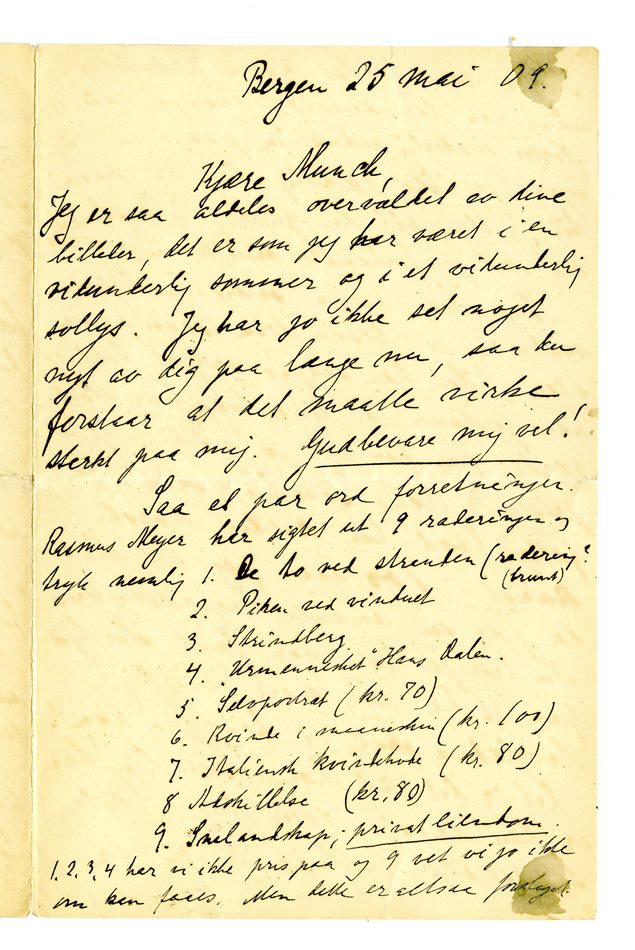 Bergen 25 mai 09.
Kjære Munch,
Jeg er saa aldeles overvældet av dine
billeder, det er som jeg har været i en
vidunderlig sommer og i et vidunderlig
sollys. Jeg har jo ikke set noget
nyt av dig paa længe nu, saa du
forstaar at det maatte virke
sterkt paa mig. Gudbevare mig vel!
Saa et par ord forretninger.
Rasmus Meyer har sigtet ut 9 raderinger og
tryk nemlig 1. De to ved stranden (radering?
(brunt)
2. Piken ved vinduet
3. Strindberg
4. "Urmennesket" Hans Dalen.
5. Selvportræt (kr. 70)
6. Kvinde i maaneskin (kr. 100)
7. Italiensk kvindehode (kr. 80)
8 Adskillelse (kr. 80)
9. Snelandskap; privat eiendom.
1, 2, 3, 4 har vi ikke pris paa og 9 vet vi jo ikke
om kan faaes. Men dette er altsaa forslaget.